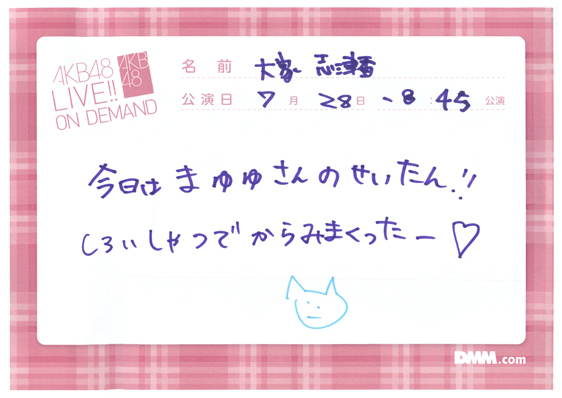 AKB48
LIVE!!
ON DEMAND
AKB
48
名前 大家 志津香
公演日 7月 28日 - 8:45 公演
今日は まゆゆさんの せいたん!!
しろいしゃつで からみまくったー♡
DMM.com